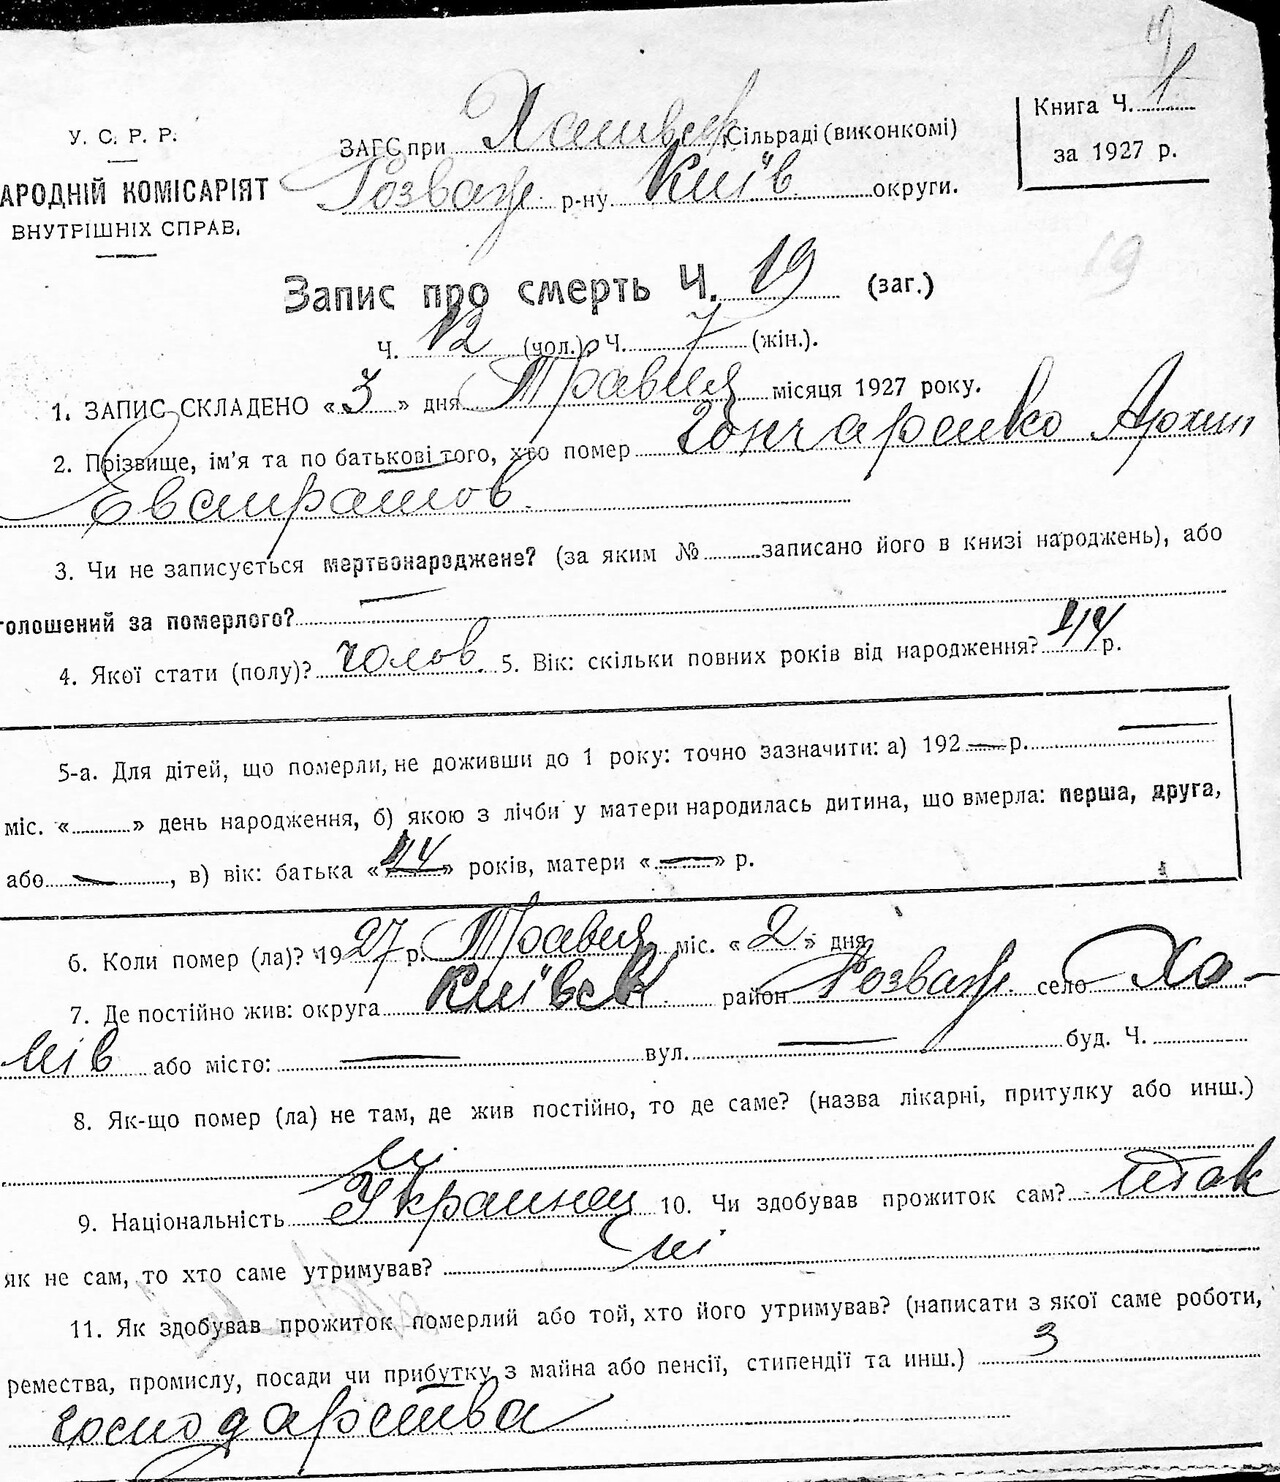 19
Книга Ч. 1
за 1927 р.
У. С. Р. Р.
АРОДНІЙ КОМІСАРІЯТ
ВНУТРІШНІХ СПРАВ.
ЗАГС при Хамівськ Сільраді (виконкомі)
Розваж. р-ну Київ округи.
19
Запис про смерть Ч. 19 (заг.)
Ч. 12 (чол.), Ч. 7 (жін.).
1. ЗАПИС СКЛАДЕНО « 3 » дня Травня місяця 1927 року.
2. Прізвище, ім'я та по батькові того, хто помер Гончаренко Архип
Евстратов.
3. Чи не записується мертвонароджене? (за яким № записано його в книзі народжень), або
голошений за померлого? —
4. Якої стати (полу)? чолов. 5. Вік: скільки повних років від народження? 44 р.
5-а. Для дітей, що померли, не доживши до 1 року: точно зазначити: а) 192 — р. —
міс. « » день народження, б) якою з лічби у матери народилась дитина, що вмерла: перша, друга,
або — , в) вік: батька « 44 » років, матери « — » р.
6. Коли помер (ла)? 1927 р. Травня міс. « 2 » дня
7. Де постійно жив: округа Київськ район Розваж. село Ха-
мів або місто: — вул. — буд. Ч.
8. Як-що помер (ла) не там, де жив постійно, то де саме? (назва лікарні, притулку або инш.)
9. Національність Украинец 10. Чи здобував прожиток сам? так
як не сам, то хто саме утримував? ні
11. Як здобував прожиток померлий або той, хто його утримував? (написати з якої саме роботи,
ремества, промислу, посади чи прибутку з майна або пенсії, стипендії та инш.) З
господарства